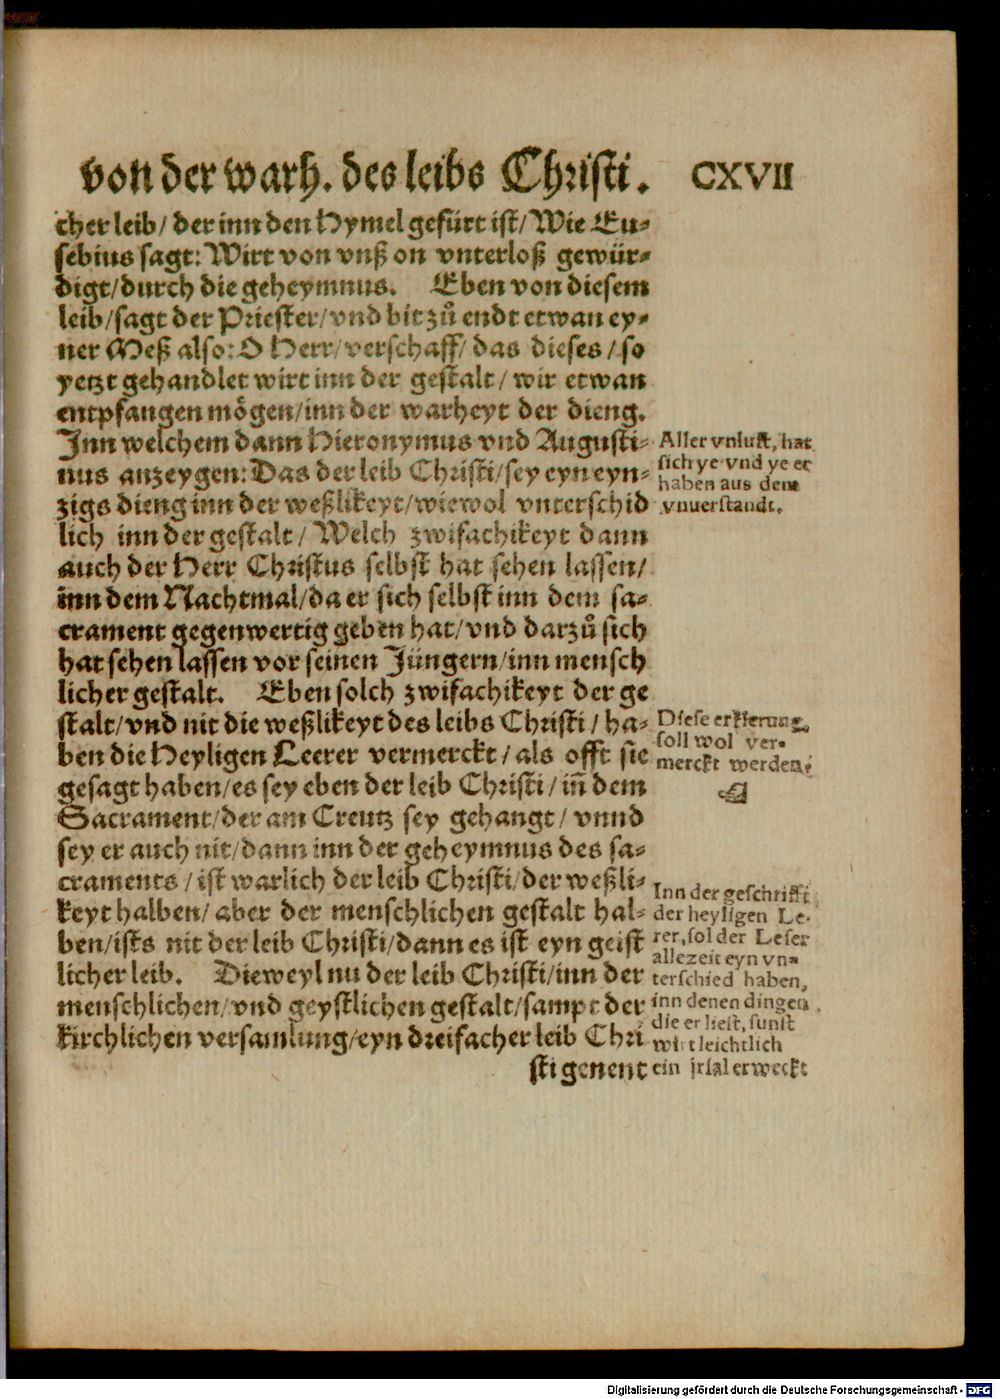 von der warh. des leibs Christi. CXVII
cher leib/ der inn den Hymel gefürt ist/ Wie Eu-
sebius sagt: Wirt von vnß on vnterloß gewür-
digt/durch die geheymnus. Eben von diesem
leib/sagt der Priester/vnd bit zů endt etwan ey-
ner Meß also: O Herr/verschaff/das dieses/so
yetzt gehandlet wirt inn der gestalt/ wir etwan
entpfangen mögen/inn der warheyt der dieng.
Inn welchem dann Hieronymus vnd Augusti-
nus anzeygen: Das der leib Christi/sey eyn eyn-
zigs dieng inn der weßlikeyt/wiewol vnterschid
lich inn der gestalt/ Welch zwifachikeyt dann
auch der Herr Christus selbst hat sehen lassen/
inn dem Nachtmal/da er sich selbst inn dem sa-
crament gegenwertig geben hat/vnd darzů sich
hat sehen lassen vor seinen Jüngern/inn mensch
licher gestalt. Eben solch zwifachikeyt der ge
stalt/vnd nit die weßlikeyt des leibs Christi/ ha-
ben die Heyligen Leerer vermerckt/als offt sie
gesagt haben/es sey eben der leib Christi/ iñ dem
Sacrament/der am Creutz sey gehangt/ vnnd
sey er auch nit/dann inn der geheymnus des sa-
craments/ist warlich der leib Christi/der weßli-
keyt halben/ aber der menschlichen gestalt hal-
ben/ists nit der leib Christi/dann es ist eyn geist
licher leib. Dieweyl nu der leib Christi/inn der
menschlichen/vnd geystlichen gestalt/sampt der
kirchlichen versamlung/eyn dreifacher leib Chri
sti genent
Aller vnlust, hat
sich ye vnd ye er
haben aus dem
vnuerstandt.
Diese erklerung
soll wol ver-
merckt werden.
Inn der geschrifft
der heyligen Le-
rer, sol der Leser
allezeit eyn vn-
terschied haben,
inn denen dingen
die er liest, sunst
wirt leichtlich
ein jrsal erweckt
Digitalisierung gefördert durch die Deutsche Forschungsgemeinschaft - DFG